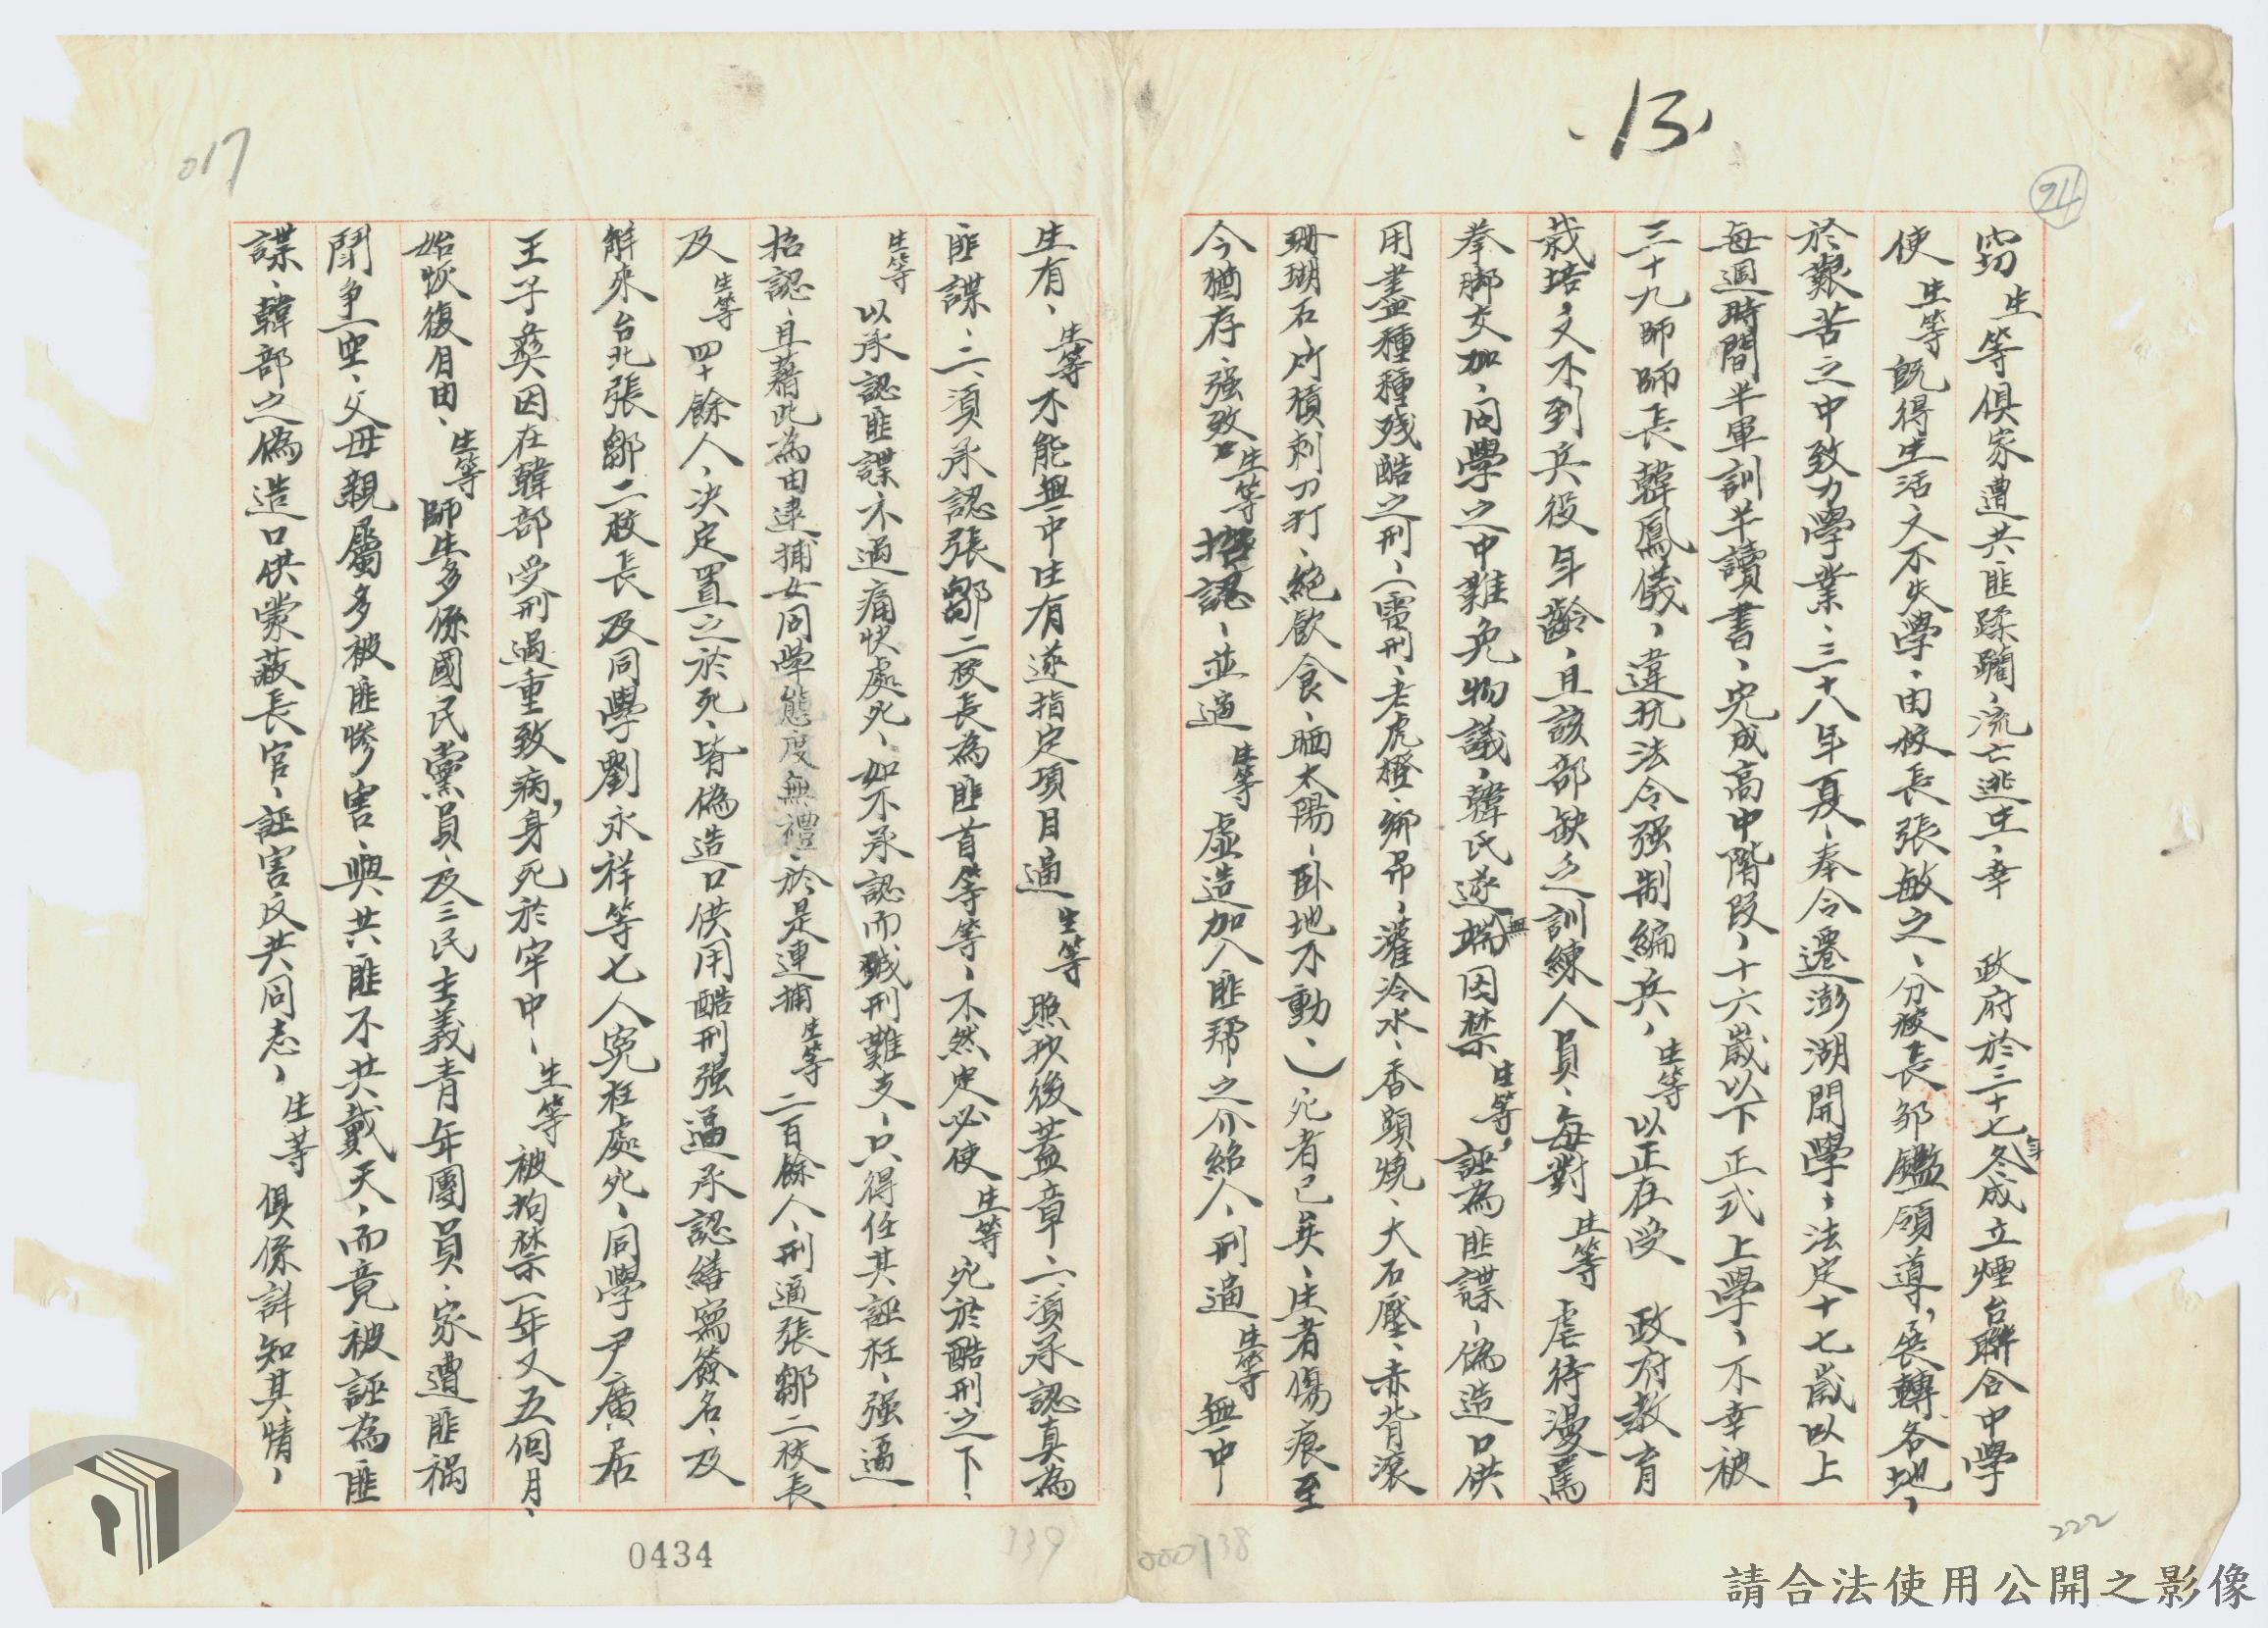 13
94
窃生等俱家遭共匪蹂躪、流亡逃生、幸　政府於三十七年冬成立煙台聯合中學
使生等既得生活、又不失學、由校長張敏之、分校長邹鑑領導，展轉各地、
於艱苦之中致力學業、三十八年夏、奉令遷澎湖開學、法定十七歲以上
每週時間半軍訓半讀書、完成高中階段、十六歲以下正式上學、不幸被
三十九師師長韓鳳儀、違抗法令强制編兵、生等以正在受　政府教育
栽培、又不到兵役年齡、且該部缺乏訓練人員、每對生等虐待漫罵
拳脚交加、同學之中難免物議、韓氏遂無端因禁生等，誣為匪諜、偽造口供
用盡種種残酷之刑、（電刑、老虎櫈、綁吊、灌冷水、香頭燒、大石壓、赤背滾
珊瑚石、竹積刺刀打、絕飲食、晒太陽、臥地不動、）死者已矣、生者傷痕至
今猶存、强致生等招認、並逼生等虛造加入匪帮之介紹人、刑逼生等無中
生有、生等不能無中生有遂指定項目逼生等照抄後蓋章、一、須承認真為
匪諜、二、須承認張鄒二校長為匪首等等、不然定必使生等死於酷刑之下、
生等以承認匪諜不過痛快處死、如不承認而残刑難支、只得任其誣枉、强逼
招認、且藉此為由逮捕女同學態度無禮、於是連捕生等二百餘人、刑逼張鄒二校長
及生等四十餘人、決定置之於死、皆偽造口供用酷刑强逼承認繕寫簽名、及
解來台北張鄒二校長及同學劉永祥等七人冤枉處死、同學尹廣居
王子彝因在韓部受刑過重致病，身死於牢中、生等被拘禁一年又五個月、
始恢復自由、生等師生多係國民黨員、及三民主義青年團員、家遭匪禍
鬥争一空、父母親屬多被匪慘害、與共匪不共戴天、而竟被誣為匪
諜、韓部之偽造口供蒙蔽長官、誣害反共同志、生等俱係詳知其情、
017
0434
139
000138
222
請合法使用公開之影像